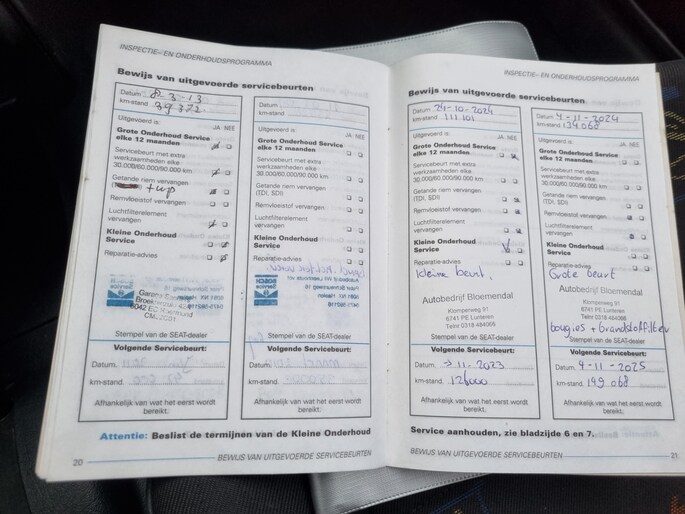 INSPECTIE- EN ONDERHOUDSPROGRAMMA
Bewijs van uitgevoerde servicebeurten
Datum 8 3-13
km-stand 39372
Uitgevoerd is: JA NEE
Grote Onderhoud Service
elke 12 maanden
Servicebeurt met extra
werkzaamheden elke
30.000/60.000/90.000 km
Getande riem vervangen
+ wp
Remvloeistof vervangen
Luchtfilterelement
vervangen
Kleine Onderhoud
Service
Reparatie-advies
6042 EC Roermond
Stempel van de SEAT-dealer
Volgende Servicebeurt:
Datum.
km-stand.
Afhankelijk van wat het eerst wordt
bereikt.
Datum
km-stand
Uitgevoerd is: JA NEE
Grote Onderhoud Service
elke 12 maanden
Servicebeurt met extra
werkzaamheden elke
30.000/60.000/90.000 km
Getande riem vervangen
(TDI, SDI)
Remvloeistof vervangen
Luchtfilterelement
vervangen
Kleine Onderhoud
Service
Reparatie-advies
Stempel van de SEAT-dealer
Volgende Servicebeurt:
Datum.
km-stand.
Afhankelijk van wat het eerst wordt
bereikt.
Attentie: Beslist de termijnen van de Kleine Onderhoud
20
BEWIJS VAN UITGEVOERDE SERVICEBEURTEN
INSPECTIE- EN ONDERHOUDSPROGRAMMA
Bewijs van uitgevoerde servicebeurten
Datum 24-10-2024
km-stand 111.101
Uitgevoerd is: JA NEE
Grote Onderhoud Service
elke 12 maanden
Servicebeurt met extra
werkzaamheden elke
30.000/60.000/90.000 km
Getande riem vervangen
(TDI, SDI)
Remvloeistof vervangen
Luchtfilterelement
vervangen
Kleine Onderhoud
Service
Reparatie-advies
kleine beurt.
Autobedrijf Bloemendal
Klomperweg 91
6741 PE Lunteren
Telnr 0318 484066
Stempel van de SEAT-dealer
Volgende Servicebeurt:
Datum. 11-2023
km-stand. 126000
Afhankelijk van wat het eerst wordt
bereikt.
Datum 4-11-2024
km-stand 134068
Uitgevoerd is: JA NEE
Grote Onderhoud Service
elke 12 maanden
Servicebeurt met extra
werkzaamheden elke
30.000/60.000/90.000 km
Getande riem vervangen
(TDI, SDI)
Remvloeistof vervangen
Luchtfilterelement
vervangen
Kleine Onderhoud
Service
Reparatie-advies
Grote beurt
Autobedrijf Bloemendal
Klomperweg 91
6741 PE Lunteren
Telnr 0318 484066
bougies + brandstoffilter
Stempel van de SEAT-dealer
Volgende Servicebeurt:
Datum. 4-11-2025
km-stand. 149.068
Afhankelijk van wat het eerst wordt
bereikt.
Service aanhouden, zie bladzijde 6 en 7.
BEWIJS VAN UITGEVOERDE SERVICEBEURTEN
21